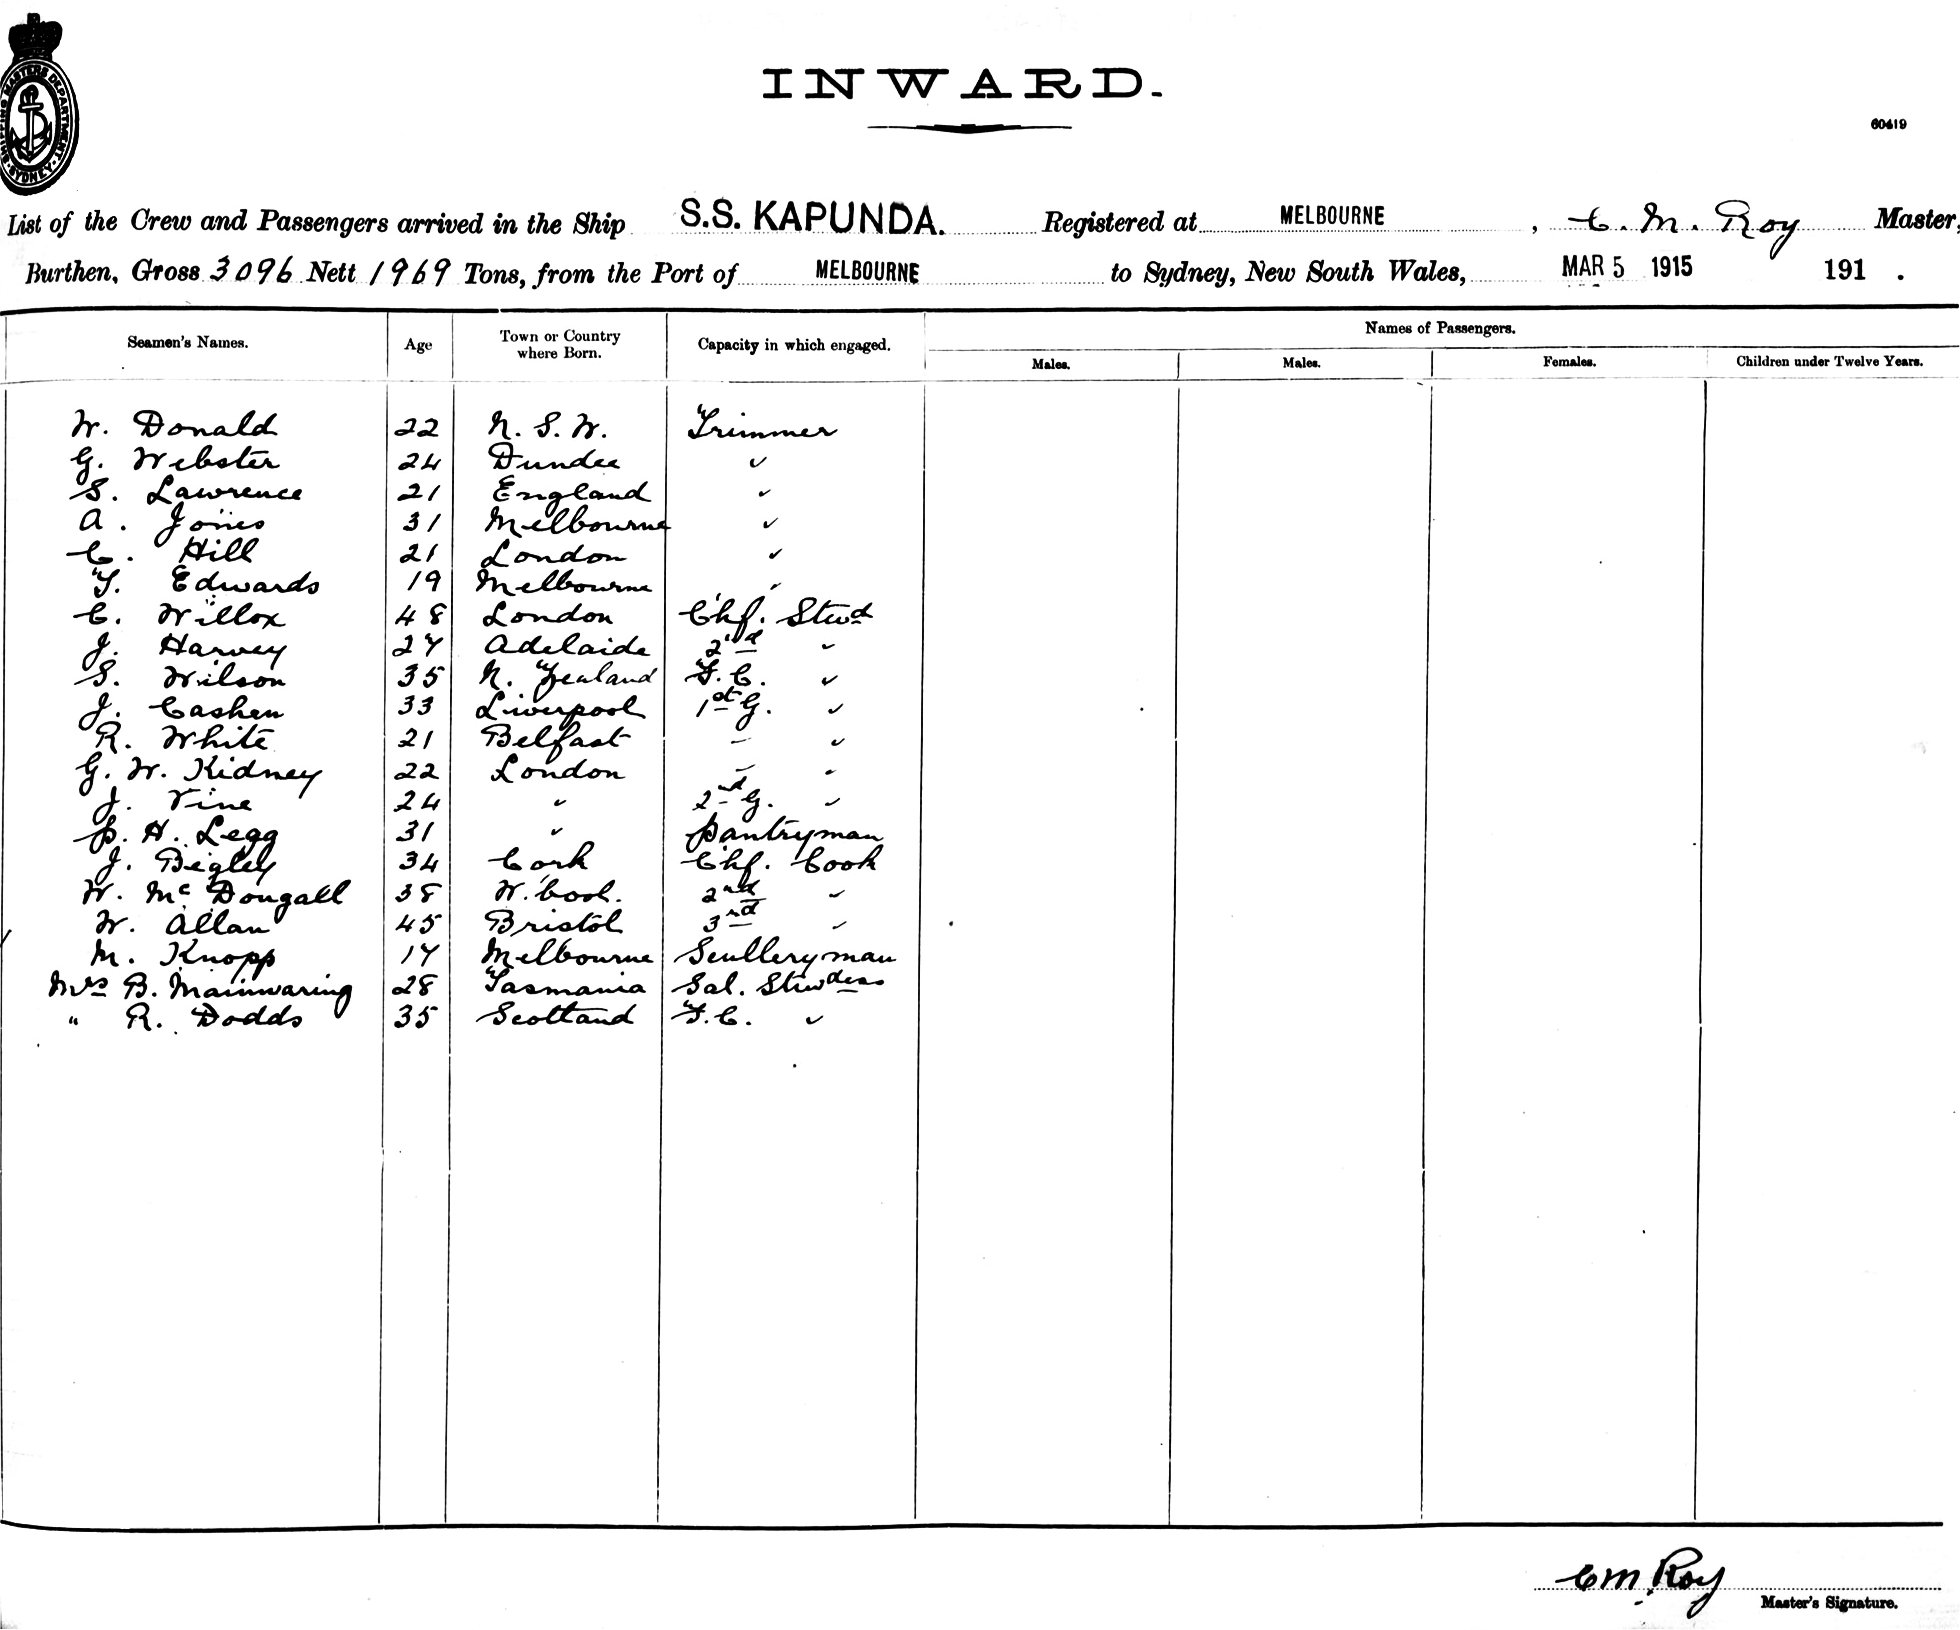 SHIPPING MASTERS DEPARTMENT. SYDNEY.
INWARD.
60419
List of the Crew and Passengers arrived in the Ship S.S. KAPUNDA. Registered at MELBOURNE, C. M. Roy Master,
Burthen, Gross 3096 Nett 1969 Tons, from the Port of MELBOURNE to Sydney, New South Wales, MAR 5 1915 191 .
Names of Passengers.
Seamen's Names. Age Town or Country where Born. Capacity in which engaged. Males. Males. Females. Children under Twelve Years.
W. Donald 22 N. S. W. Trimmer
G. Webster 24 Dundee "
S. Lawrence 21 England "
A. Jones 31 Melbourne "
C. Hill 21 London "
T. Edwards 19 Melbourne "
C. Willox 48 London Chf. Stwd
J. Harvey 27 Adelaide 2nd "
S. Wilson 35 N. Zealand F.C. "
J. Cashen 33 Liverpool 1st G. "
R. White 21 Belfast " "
G. W. Kidney 22 London " "
J. Vine 24 " 2nd G. "
P. H. Legg 31 " Pantryman
J. Begley 34 Cork Chf. Cook
W. McDougall 38 W.bool. 2nd "
W. Allan 45 Bristol 3rd "
M. Knopp 17 Melbourne Sculleryman
Mrs B. Mainwaring 28 Tasmania Sal. Stewdess
" R. Dodds 35 Scotland F.C. "
C M. Roy
Master's Signature.